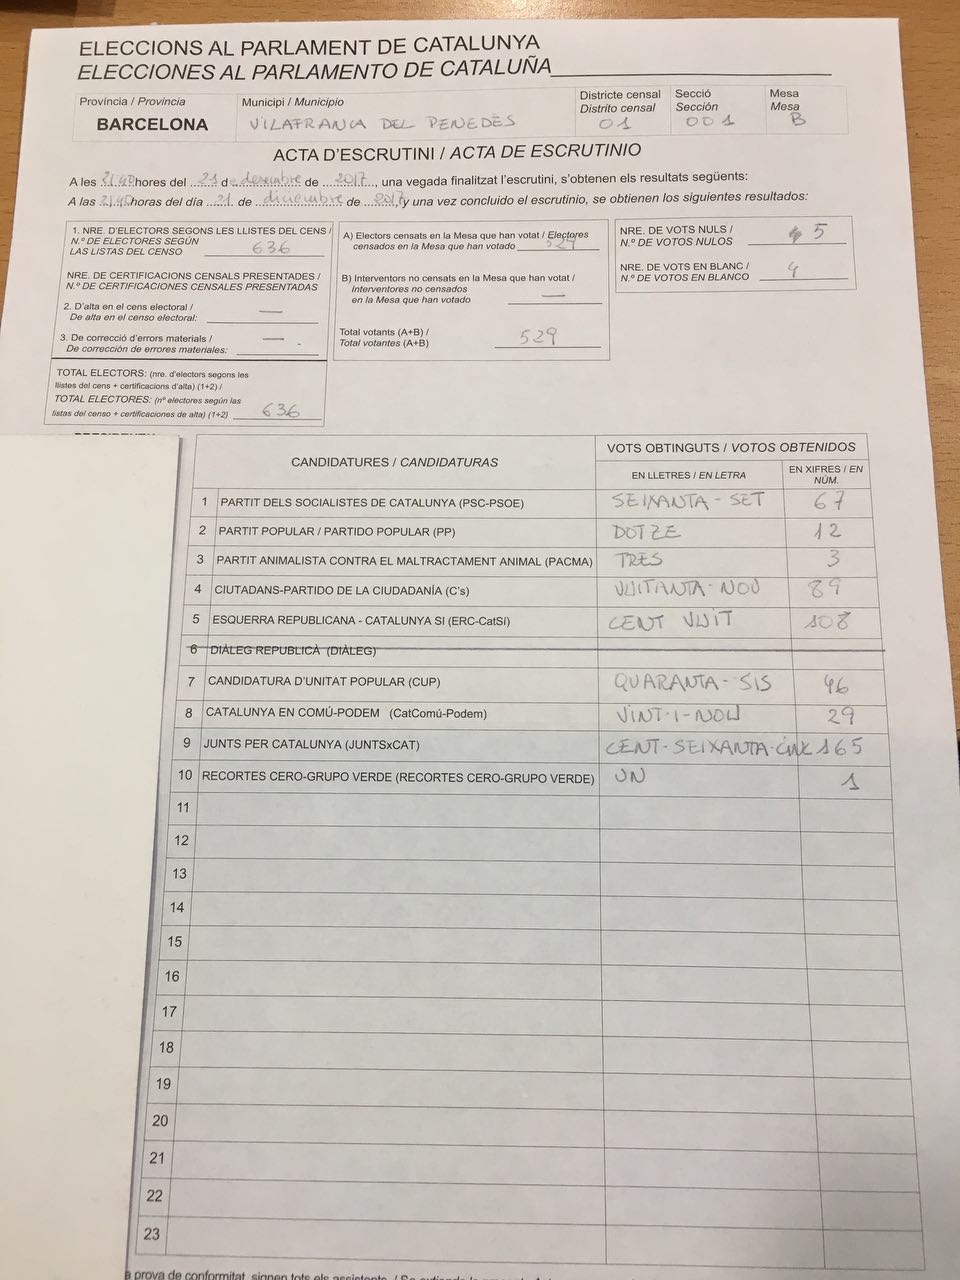 ELECCIONS AL PARLAMENT DE CATALUNYA
ELECCIONES AL PARLAMENTO DE CATALUÑA
Província / Provincia
BARCELONA
Municipi / Municipio
VILAFRANCA DEL PENEDÈS
Districte censal
Distrito censal
01
Secció
Sección
001
Mesa
Mesa
B
ACTA D'ESCRUTINI / ACTA DE ESCRUTINIO
A les 21:40 hores del 21 de desembre de 2017, una vegada finalitzat l'escrutini, s'obtenen els resultats següents:
A las 21:40 horas del día 21 de diciembre de 2017 y una vez concluido el escrutinio, se obtienen los siguientes resultados:
1. NRE. D'ELECTORS SEGONS LES LLISTES DEL CENS /
N.º DE ELECTORES SEGÚN
LAS LISTAS DEL CENSO 636
NRE. DE CERTIFICACIONS CENSALS PRESENTADES /
N.º DE CERTIFICACIONES CENSALES PRESENTADAS
2. D'alta en el cens electoral /
De alta en el censo electoral: —
3. De correcció d'errors materials /
De corrección de errores materiales: —
TOTAL ELECTORS: (nre. d'electors segons les
llistes del cens + certificacions d'alta) (1+2) /
TOTAL ELECTORES: (nº electores según las
listas del censo + certificaciones de alta) (1+2) 636
A) Electors censats en la Mesa que han votat / Electores
censados en la Mesa que han votado 529
B) Interventors no censats en la Mesa que han votat /
Interventores no censados
en la Mesa que han votado —
Total votants (A+B) /
Total votantes (A+B) 529
NRE. DE VOTS NULS /
N.º DE VOTOS NULOS 5
NRE. DE VOTS EN BLANC /
N.º DE VOTOS EN BLANCO 4
CANDIDATURES / CANDIDATURAS
VOTS OBTINGUTS / VOTOS OBTENIDOS
EN LLETRES / EN LETRA
EN XIFRES / EN NÚM.
1 PARTIT DELS SOCIALISTES DE CATALUNYA (PSC-PSOE) SEIXANTA-SET 67
2 PARTIT POPULAR / PARTIDO POPULAR (PP) DOTZE 12
3 PARTIT ANIMALISTA CONTRA EL MALTRACTAMENT ANIMAL (PACMA) TRES 3
4 CIUTADANS-PARTIDO DE LA CIUDADANÍA (C's) VUITANTA-NOU 89
5 ESQUERRA REPUBLICANA - CATALUNYA SI (ERC-CatSí) CENT VUIT 108
6 DIÀLEG REPUBLICÀ (DIÀLEG)
7 CANDIDATURA D'UNITAT POPULAR (CUP) QUARANTA-SIS 46
8 CATALUNYA EN COMÚ-PODEM (CatComú-Podem) VINT-I-NOU 29
9 JUNTS PER CATALUNYA (JUNTSxCAT) CENT-SEIXANTA-CINC 165
10 RECORTES CERO-GRUPO VERDE (RECORTES CERO-GRUPO VERDE) UN 1
11
12
13
14
15
16
17
18
19
20
21
22
23
a prova de conformitat, signen tots els assistents. /